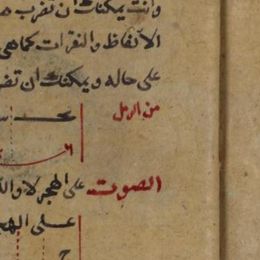 وانت يمكنك ان تقرب
الالفاظ والنقرات كما هي
على حاله ويمكنك ان تقر
من الرمل
الصوت على الهجر لا وال
على الهج